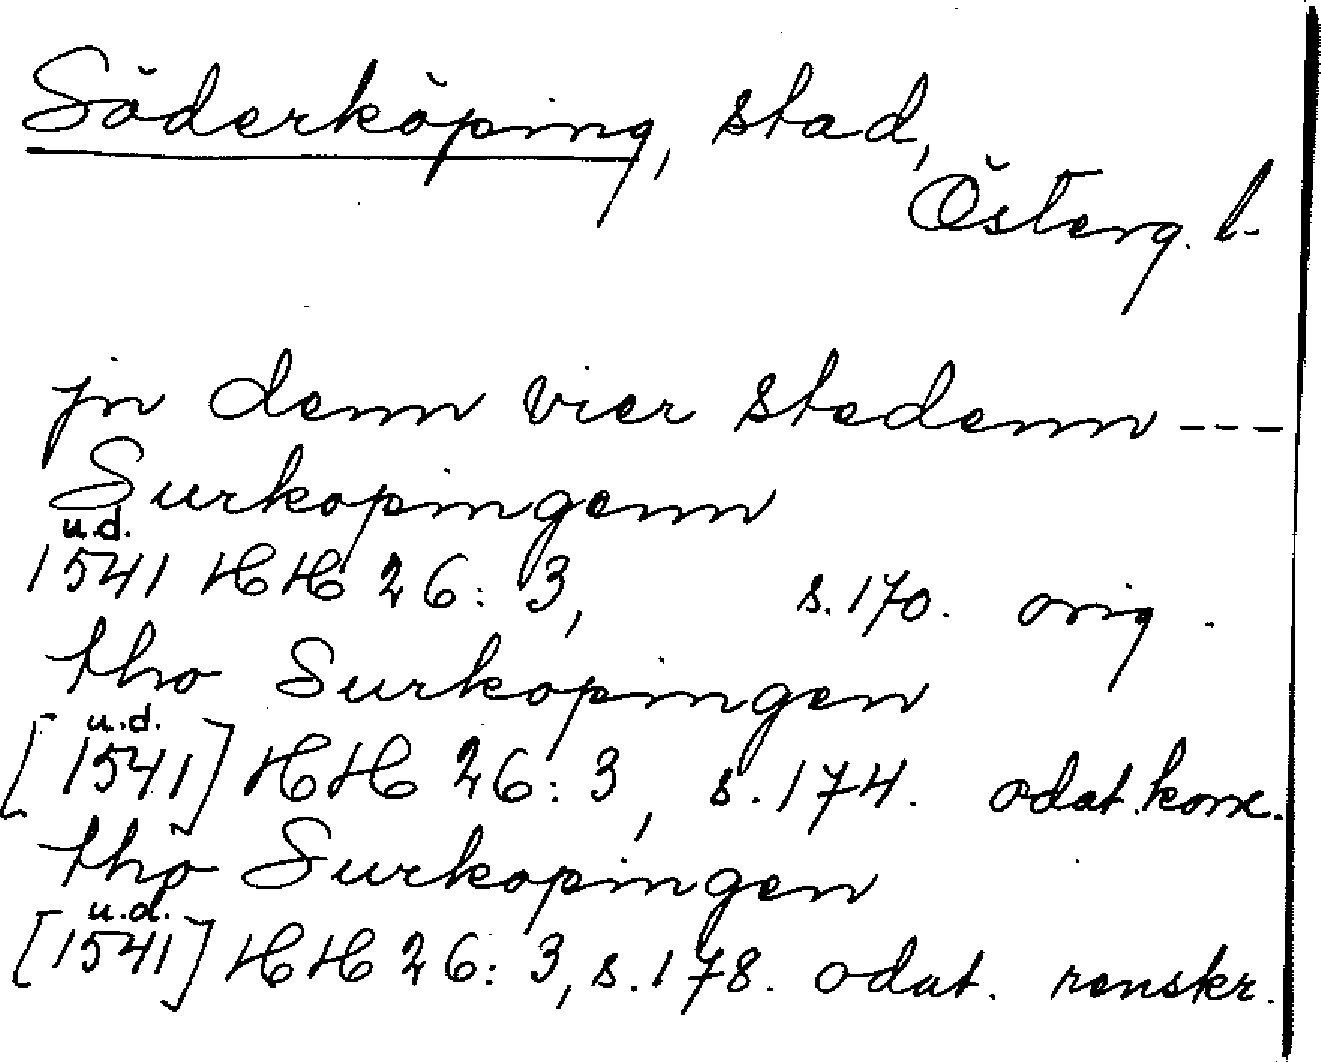 Söderköping, stad,
Österg. l.
jn denn vier stedenn ---
Surkopingenn
u.d.
1541 HH 26: 3, s. 170. orig.
tho Surkopingen
u.d.
[1541] HH 26: 3, s. 174. odat. konc.
tho Surkopingen
u.d.
[1541] HH 26: 3, s. 178. odat. renskr.